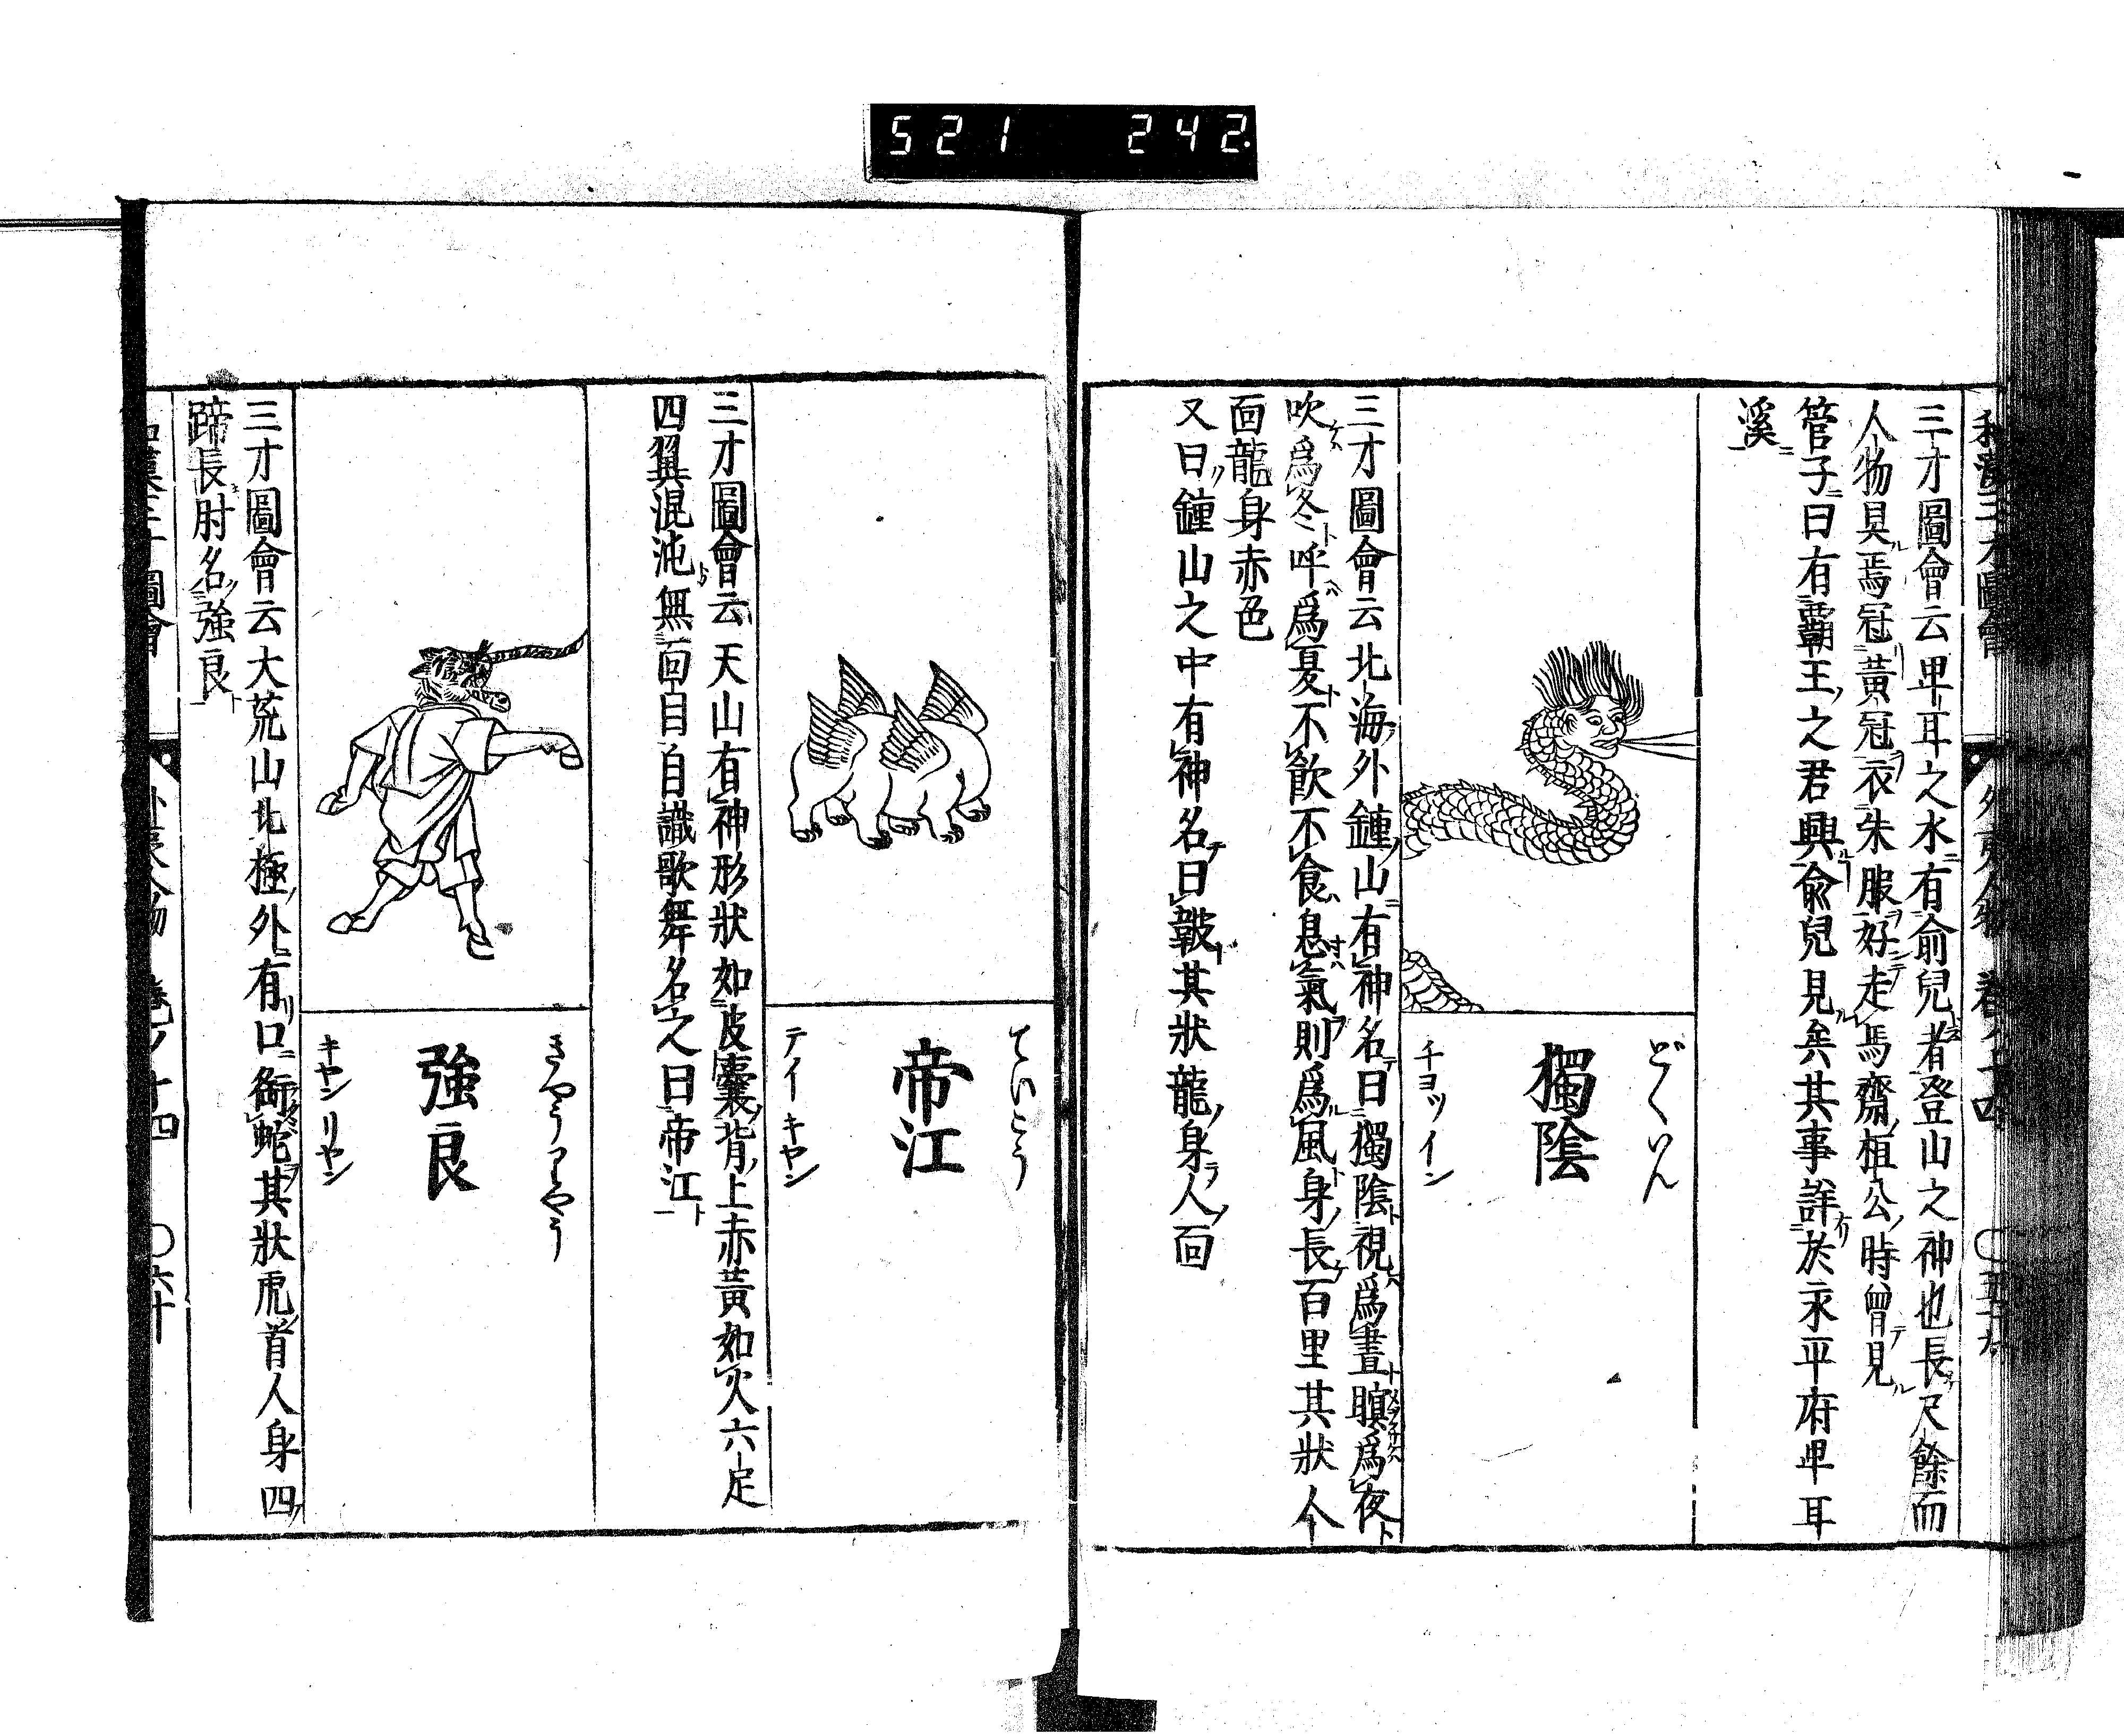 521 242.
三才圖會云卑耳之水有俞兒者登山之神也長尺餘而
人物具焉冠黃冠衣朱服好走馬齊桓公時曾見
管子曰有覇王之君興俞兒見矣其事詳於永平府卑耳
溪
どくいん
獨陰
チヨツイン
三才圖會云北海外鍾山有神名曰獨陰視爲晝瞑爲夜
吹爲冬呼爲夏不飮不食息氣則爲風身長百里其狀人
面龍身赤色
又曰鍾山之中有神名曰皷其狀龍身人面
ていこう
帝江
テイキヤン
三才圖會云天山有神形狀如皮囊背上赤黃如火六足
四翼混沌無面目自識歌舞名之曰帝江
きやうりやう
強良
キヤンリヤン
三才圖會云大荒山北極外有口銜蛇其狀虎首人身四
蹄長肘名強良